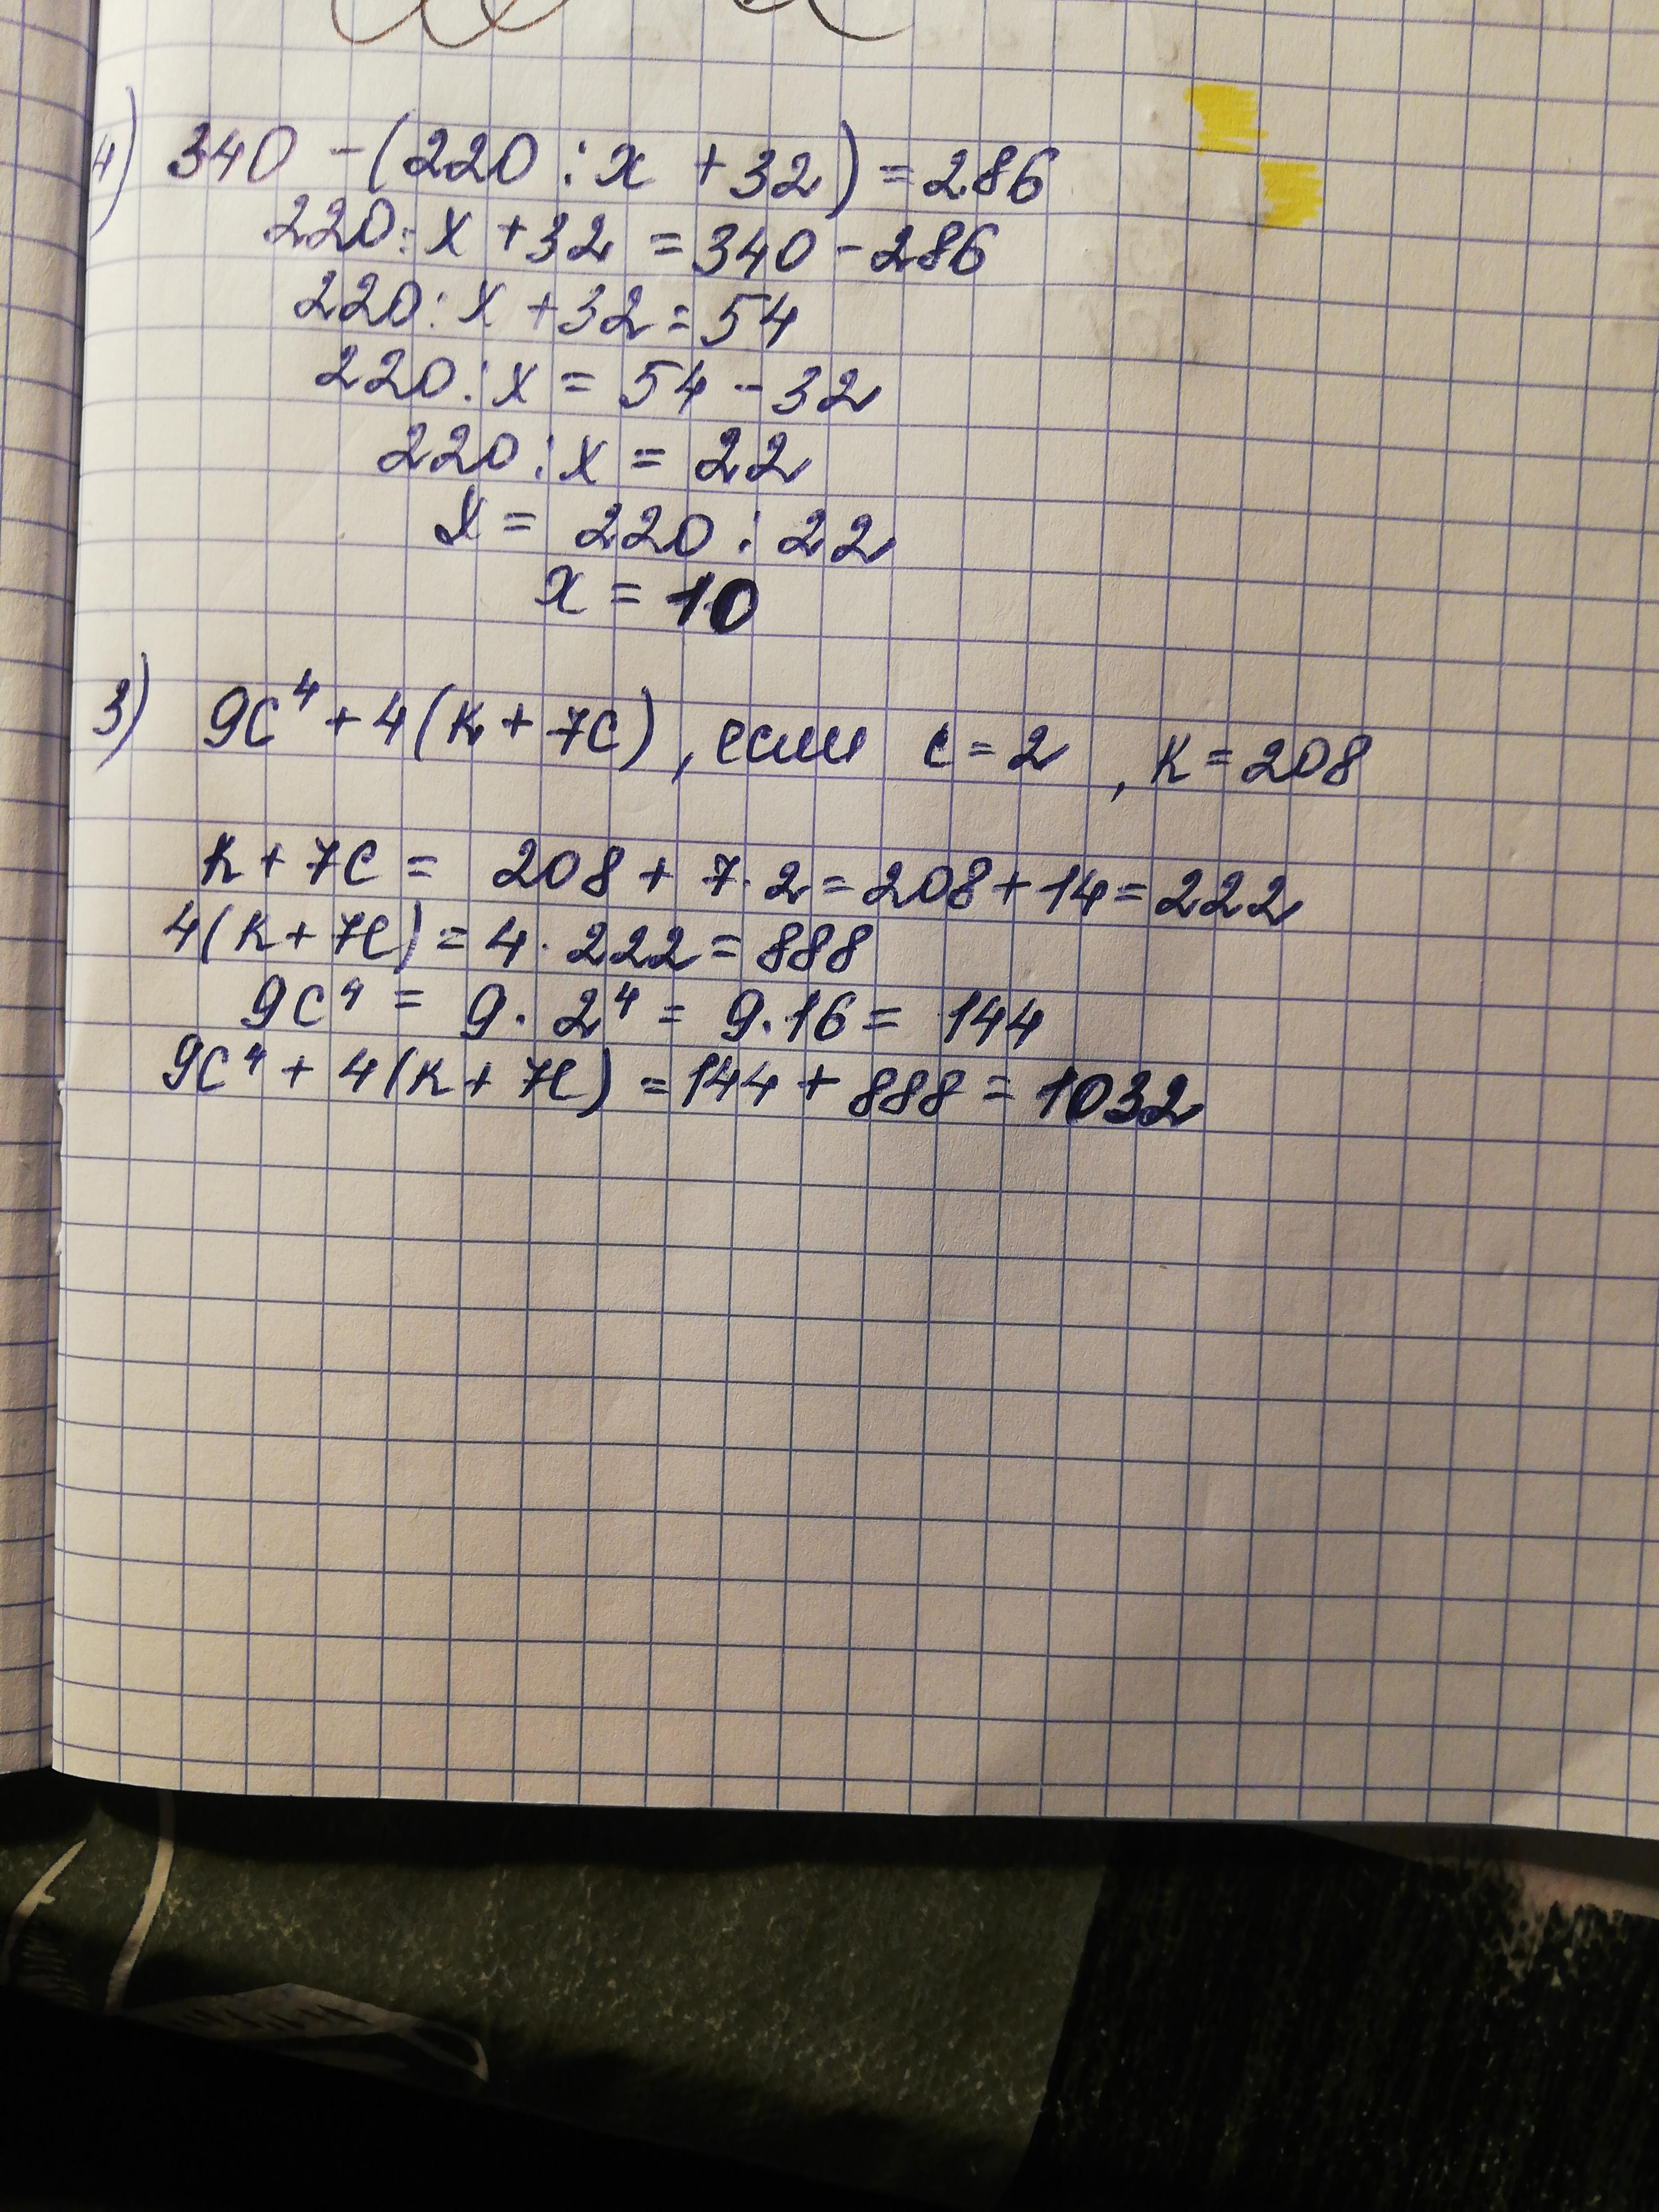 4) 340 - (220 : x + 32) = 286
220 : x + 32 = 340 - 286
220 : x + 32 = 54
220 : x = 54 - 32
220 : x = 22
x = 220 : 22
x = 10
3) 9c⁴ + 4(к + 7c), если c = 2, к = 208
к + 7c = 208 + 7 · 2 = 208 + 14 = 222
4(к + 7c) = 4 · 222 = 888
9c⁴ = 9 · 2⁴ = 9 · 16 = 144
9c⁴ + 4(к + 7c) = 144 + 888 = 1032